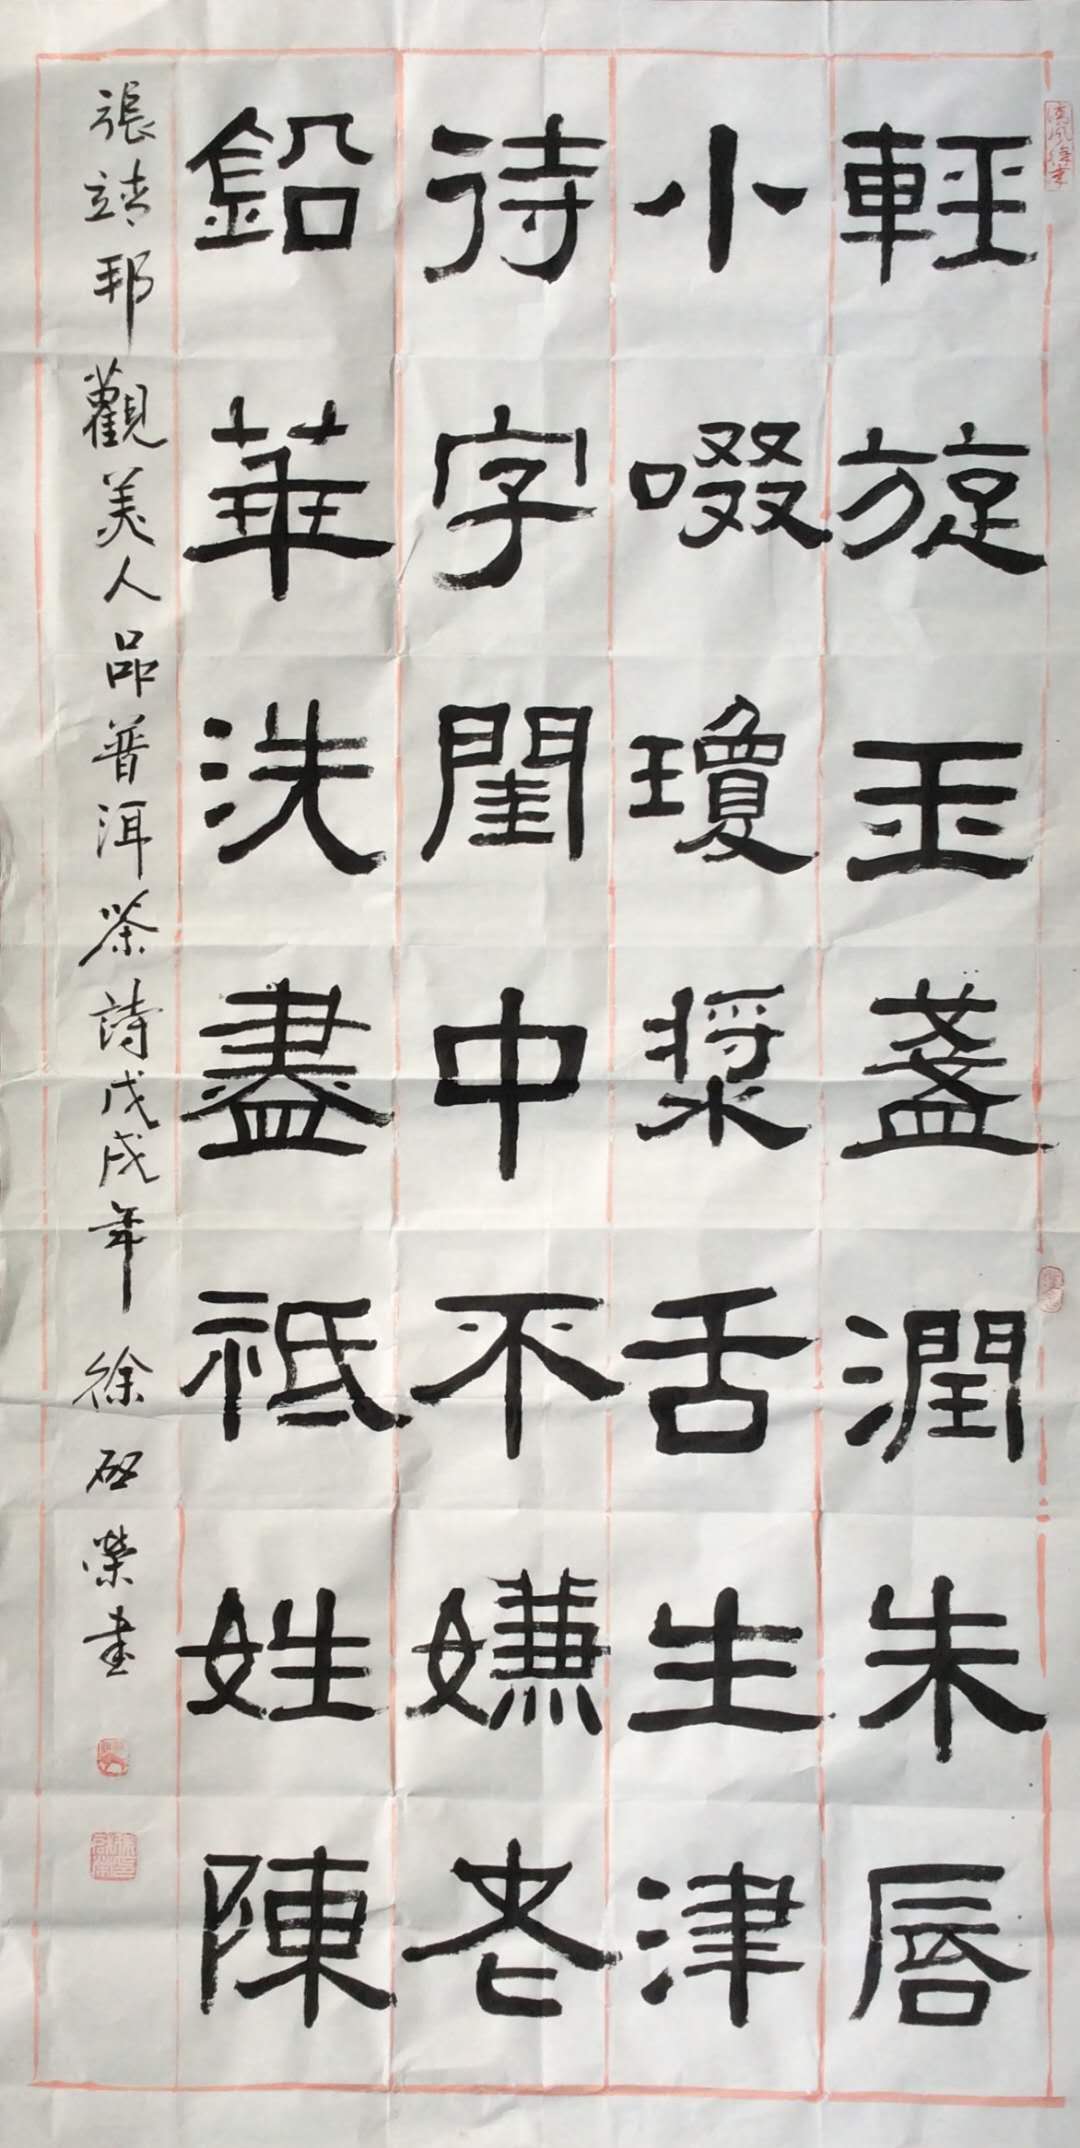 輕旋玉盞潤朱唇
小啜瓊漿舌生津
待字閨中不嫌老
鉛華洗盡祗姓陳
張靖邦觀美人品普洱茶詩戊戌年 徐啟榮書